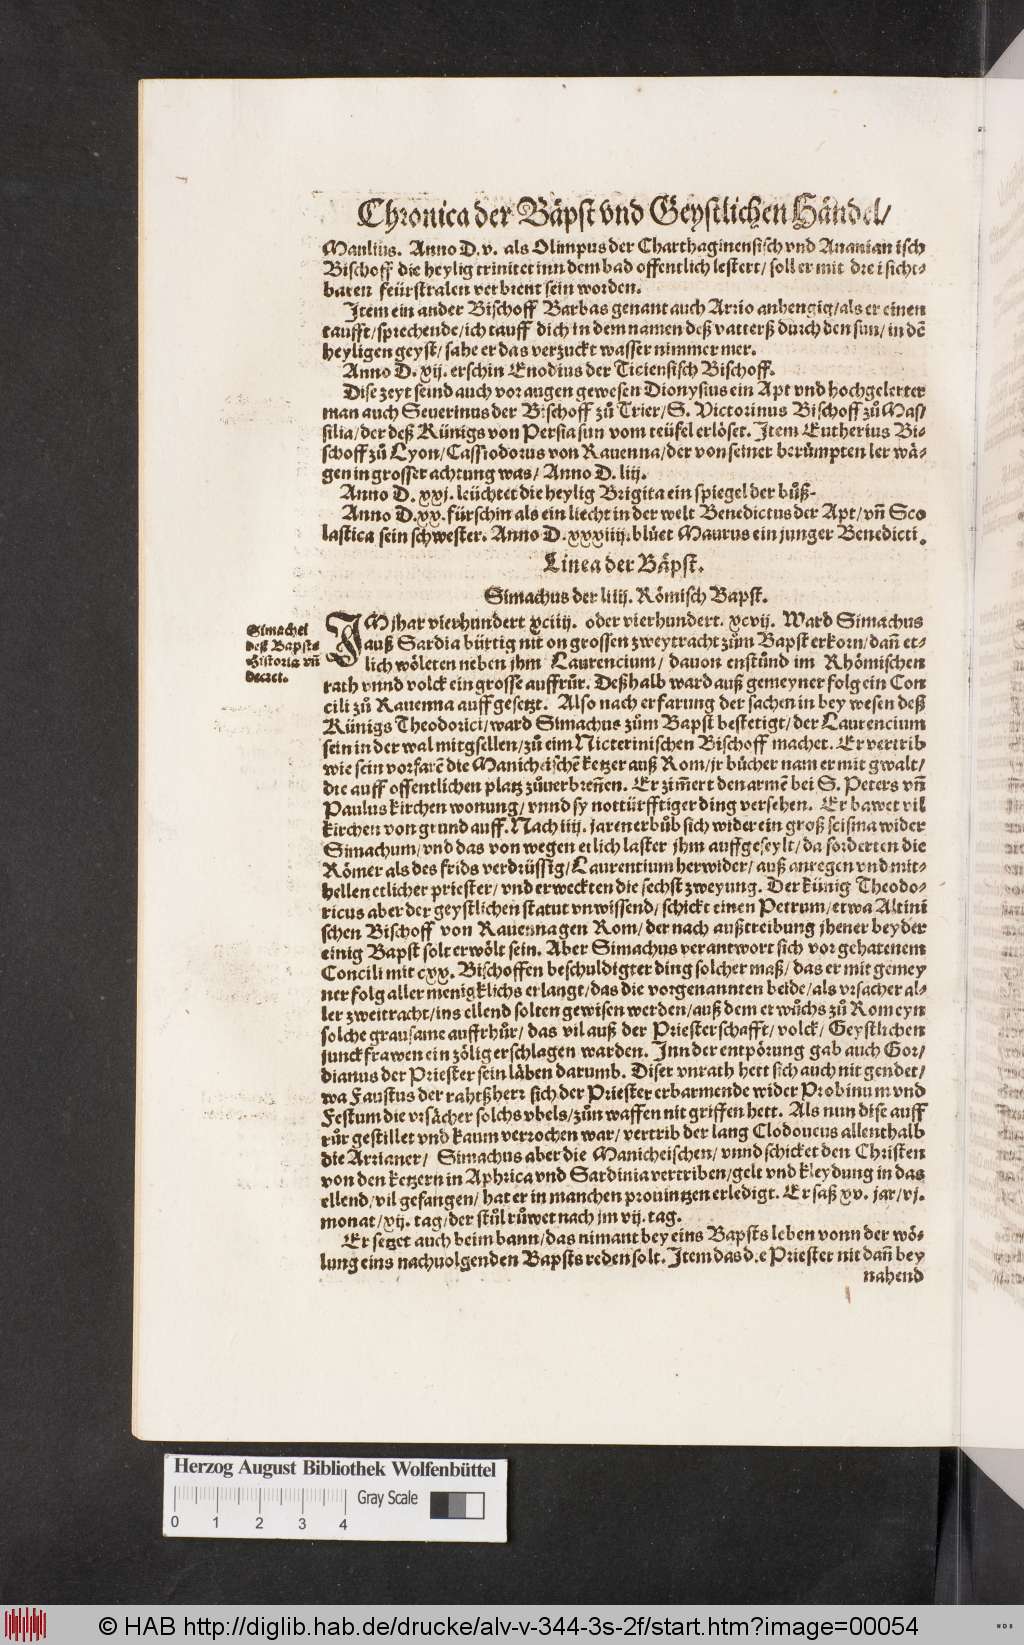 Chronica der Bäpst vnd Geystlichen Händel/
Manlius. Anno D. v. als Olimpus der Charthaginensisch vnd Ananianisch
Bischoff die heylig trinitet inn dem bad offentlich lestert/ soll er mit drei sicht⸗
baren feürstralen verbrent sein worden.
Item ein ander Bischoff Barbas genant auch Arrio anhengig/ als er einen
taufft/ sprechende/ ich tauff dich in dem namen deß vatterß durch den sun/ in dē
heyligen geyst/ sahe er das verzuckt wasser nimmer mer.
Anno D. xij. erschin Enodius der Ticiensisch Bischoff.
Dise zeyt seind auch vor augen gewesen Dionysius ein Apt vnd hochgelerter
man auch Seuerinus der Bischoff zů Trier/ S. Victorinus Bischoff zů Mas/
silia/ der deß Künigs von Persia sun vom teüfel erlöset. Item Eutherius Bi⸗
schoff zů Lyon/ Cassiodorus von Rauenna/ der von seiner berümpten ler wä⸗
gen in grosser achtung was/ Anno D. liij.
Anno D. xxj. leüchtet die heylig Brigita ein spiegel der bůß.
Anno D. xx. fürschin als ein liecht in der welt Benedictus der Apt/ vñ Sco
lastica sein schwester. Anno D. xxxiiij. blüet Maurus ein junger Benedicti.
Linea der Bäpst.
Simachus der liiij. Römisch Bapst.
Simachel
deß Bapsts
Historia vñ
decret.
IM jhar vierhundert xciiij. oder vierhundert. xcvij. Ward Simachus
auß Sardia bürtig nit on grossen zweytracht zům Bapst erkorn/ dañ et⸗
lich wöleten neben jhm Laurencium/ dauon enstůnd im Rhömischen
rath vnnd volck ein grosse auffrůr. Deßhalb ward auß gemeyner folg ein Con
cili zů Rauenna auffgesetzt. Also nach erfarung der sachen in bey wesen deß
Künigs Theodorici/ ward Simachus zům Bapst bestetigt/ der Laurencium
sein in der wal mitgsellen/ zů eim Nicterinischen Bischoff machet. Er vertrib
wie sein vorfarē die Manicheischē ketzer auß Rom/ jr bücher nam er mit gwalt/
die auff offentlichen platz zůuerbreñen. Er zim̃ert den armē bei S. Peters vñ
Paulus kirchen wonung/ vnnd sy nottürfftiger ding versehen. Er bawet vil
kirchen von grund auff. Nach iiij. jaren erhůb sich wider ein groß scisma wider
Simachum/ vnd das von wegen etlich laster jhm auffgeseylt/ da forderten die
Römer als des frids verdrüssig/ Laurentium herwider/ auß anregen vnd mit⸗
hellen etlicher priester/ vnd erweckten die sechst zweyung. Der künig Theodo⸗
ricus aber der geystlichen statut vnwissend/ schickt einen Petrum/ etwa Altini
schen Bischoff von Rauenna gen Rom/ der nach außtreibung jhener beyder
einig Bapst solt erwölt sein. Aber Simachus verantwort sich vor gehatenem
Concili mit cxx. Bischoffen beschuldigter ding solcher maß/ das er mit gemey
ner folg aller menigklichs erlangt/ das die vorgenannten beide/ als vrsacher al⸗
ler zweitracht/ ins ellend solten gewisen werden/ auß dem erwůchs zů Rom eyn
solche grausame auffrhůr/ das vil auß der Priesterschafft/ volck/ Geystlichen
junckfrawen ein zölig erschlagen warden. Inn der entpörung gab auch Gor/
dianus der Priester sein läben darumb. Diser vnrath hett sich auch nit gendet/
wa Faustus der rahtßherr sich der Priester erbarmende wider Probinum vnd
Festum die vrsächer solchs vbels/ zůn waffen nit griffen hett. Als nun dise auff
růr gestillet vnd kaum verrochen war/ vertrib der lang Clodoueus allenthalb
die Arrianer/ Simachus aber die Manicheischen/ vnnd schicket den Christen
von den ketzern in Aphrica vnd Sardinia vertriben/ gelt vnd kleydung in das
ellend/ vil gefangen/ hat er in manchen prouintzen erledigt. Er saß xv. jar/ vj.
monat/ xij. tag/ der stůl růwet nach jm vij. tag.
Er setzet auch beim bann/ das nimant bey eins Bapsts leben vonn der wö⸗
lung eins nachuolgenden Bapsts reden solt. Item das die Priester nit dañ bey
nahend
Herzog August Bibliothek Wolfenbüttel
Gray Scale
0 1 2 3 4
© HAB http://diglib.hab.de/drucke/alv-v-344-3s-2f/start.htm?image=00054